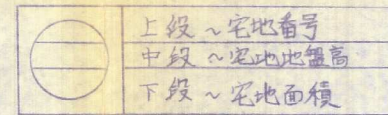 上段~宅地番号
中段~宅地地盤高
下段~宅地面積